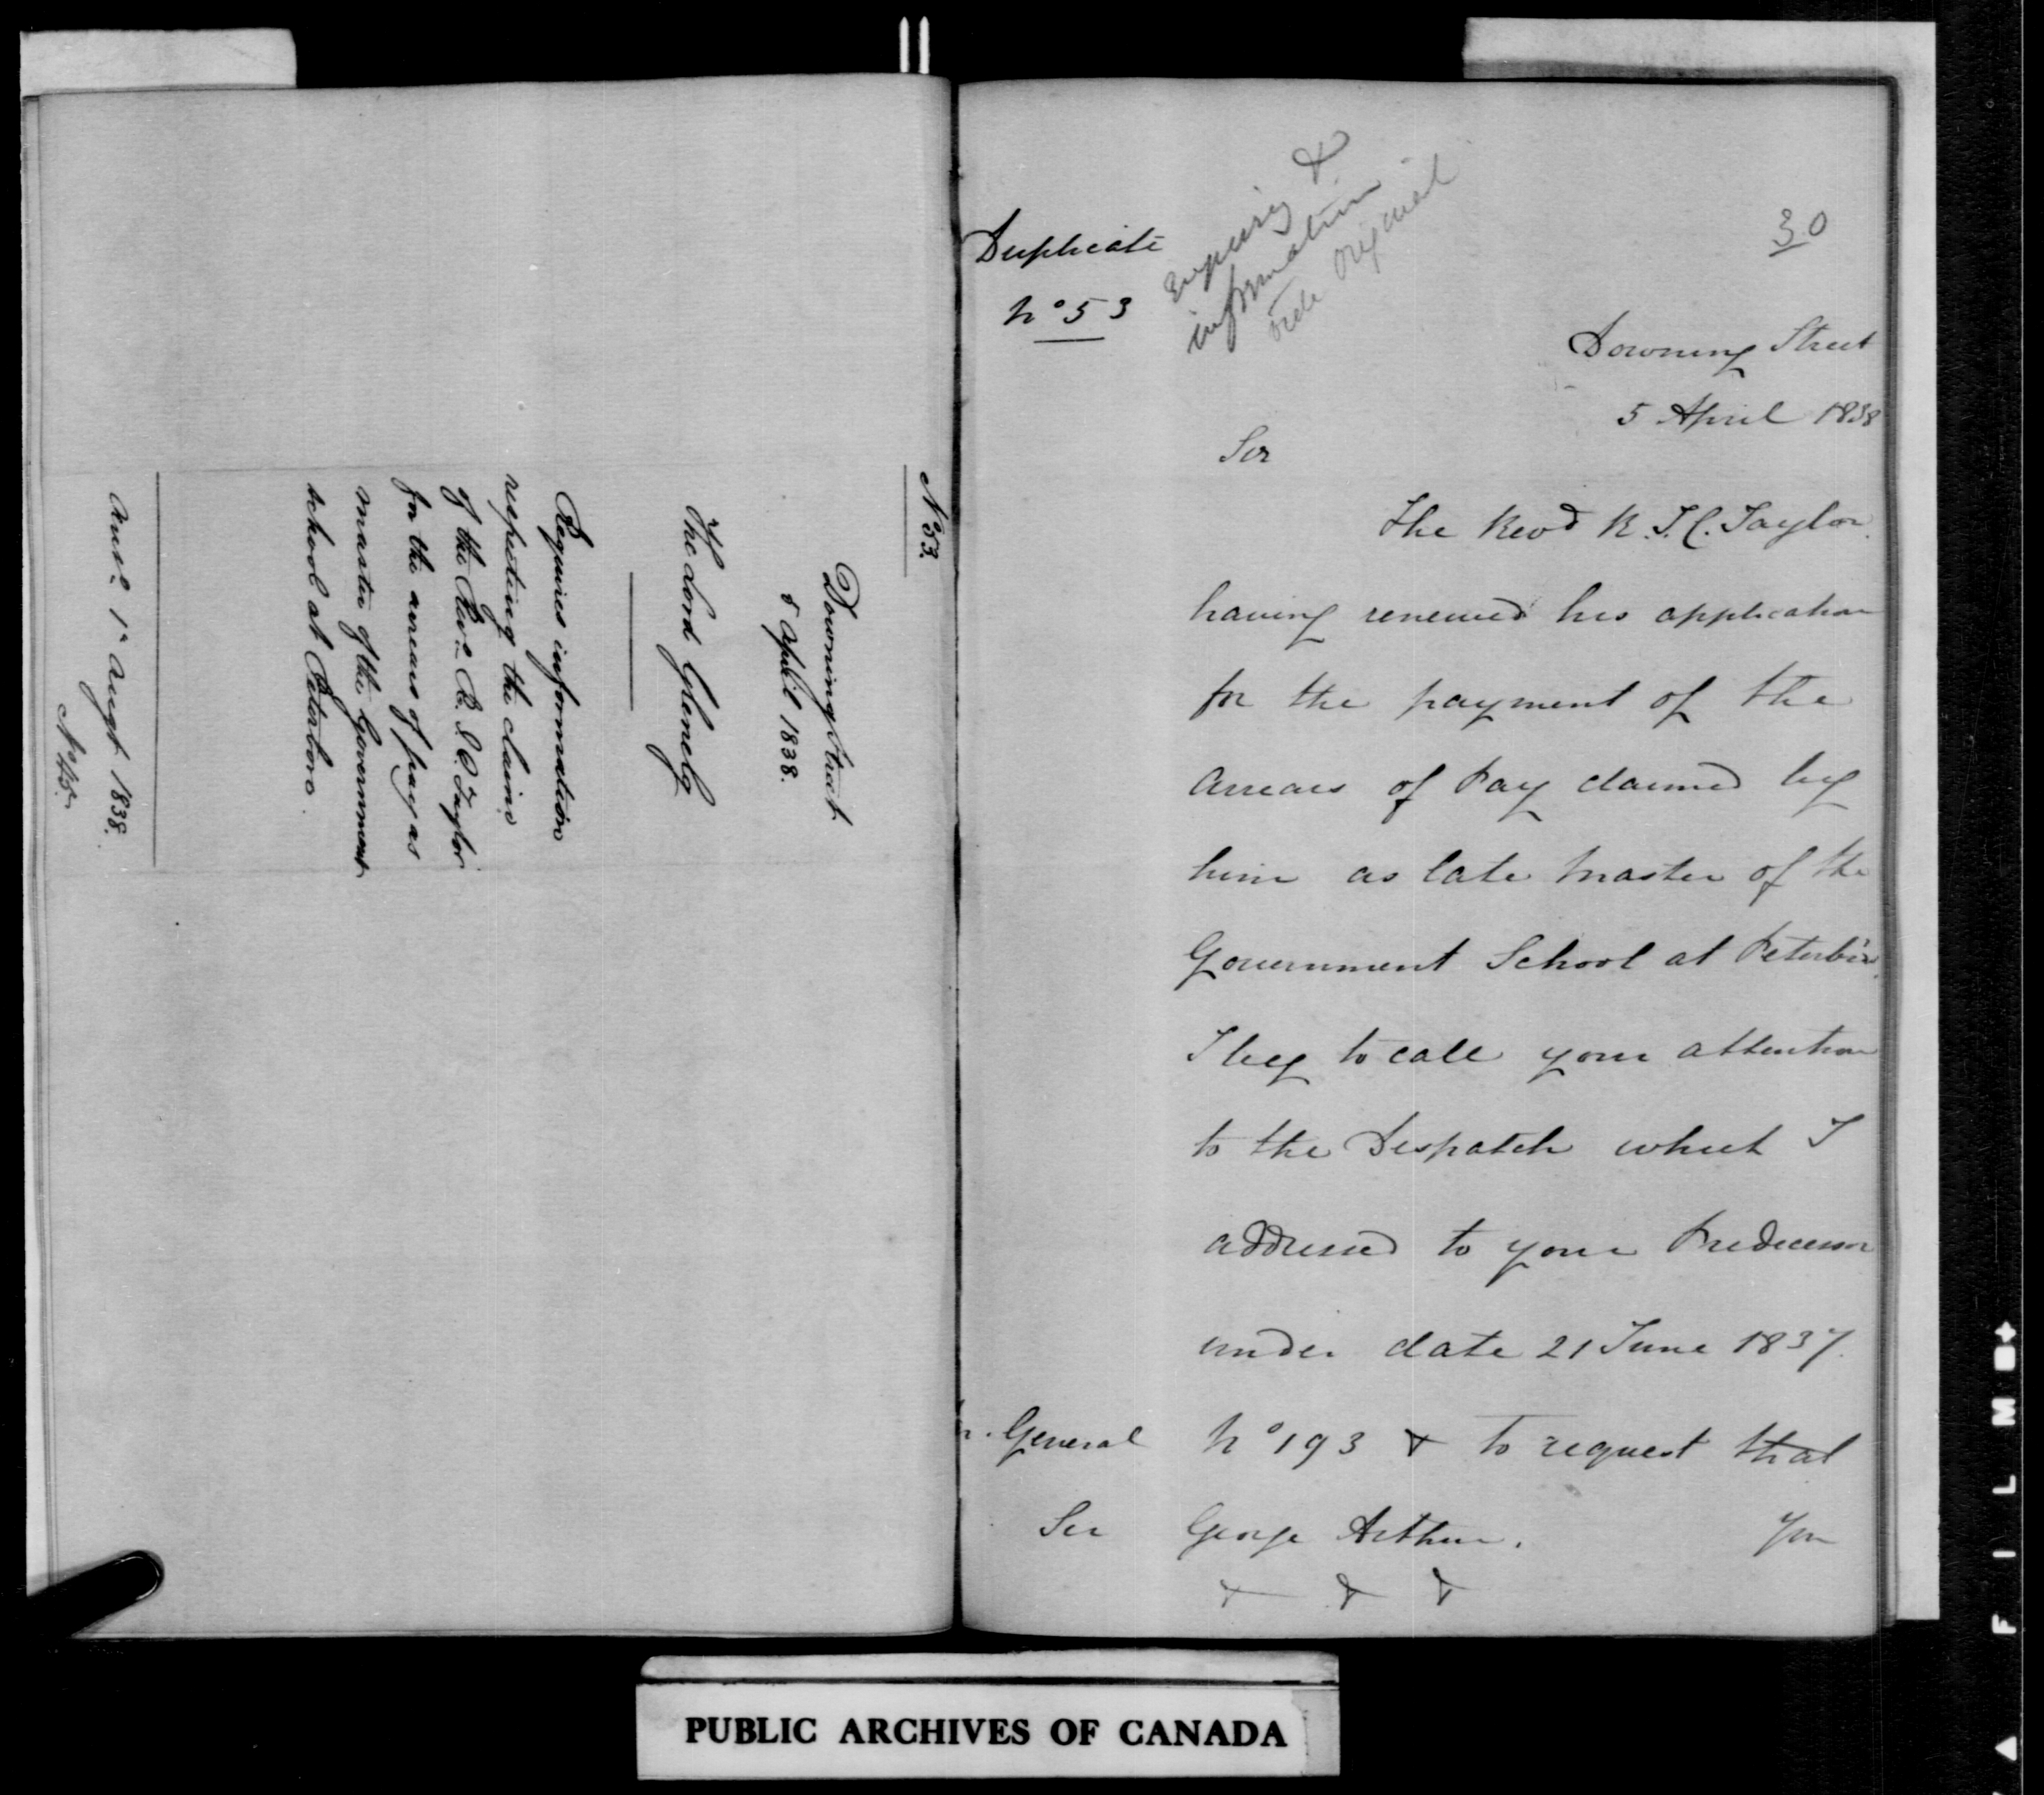 N° 53.
Downing Street
5 April 1838.
The Lord Glenelg
Requires information
respecting the claims
of the Revd. R. J. C. Taylor
for the arrears of pay as
master of the Government
school at Peterboro.
Ansd. 1st Augt 1838.
N° 45.
Duplicate
N° 53
Enquiry &
information
vide original
30
Downing Street
5 April 1838
Sir
The Revd R. J. C. Taylor
having renewed his application
for the payment of the
Arrears of Pay claimed by
him as late Master of the
Government School at Peterbro'
I beg to call your attention
to the Despatch which I
addressed to your Predecessor
under date 21 June 1837.
N° 193 & to request that
you
General
Sir George Arthur.
& & &
PUBLIC ARCHIVES OF CANADA
FILM